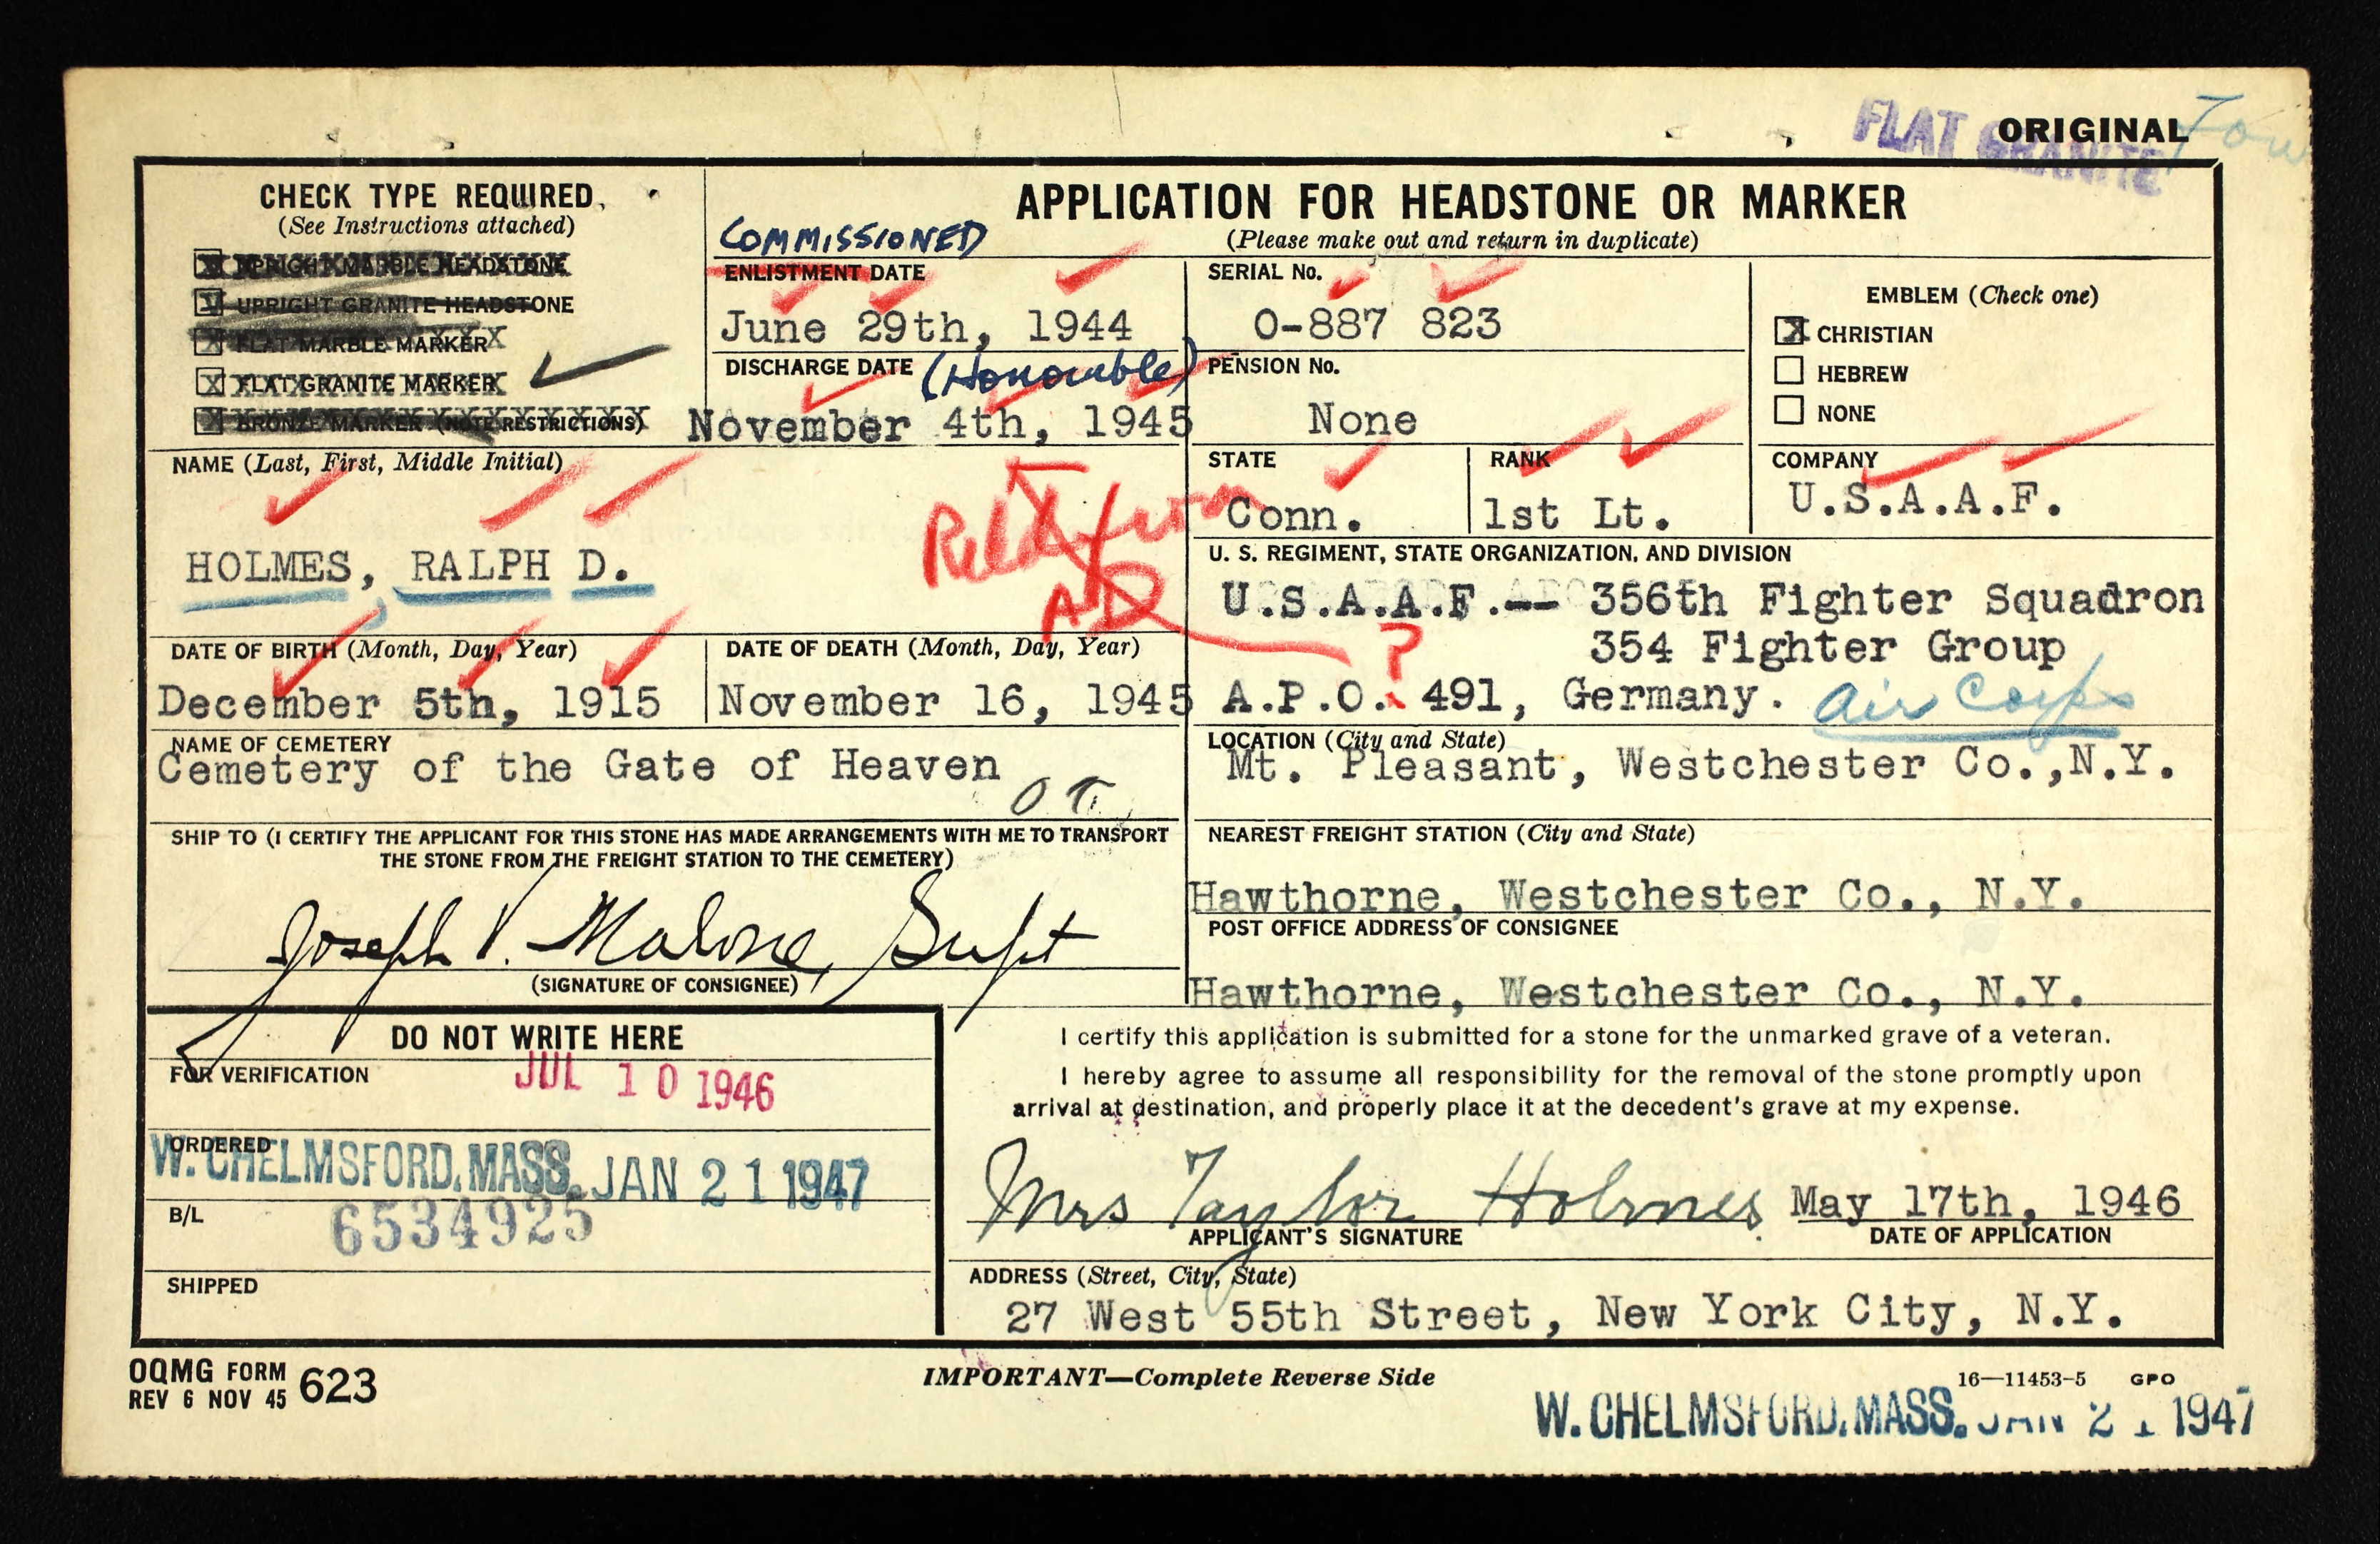 ORIGINAL
FLAT GRANITE
CHECK TYPE REQUIRED
(See Instructions attached)
UPRIGHT MARBLE HEADSTONE
UPRIGHT GRANITE HEADSTONE
FLAT MARBLE MARKER
X FLAT GRANITE MARKER
BRONZE MARKER (NOTE RESTRICTIONS)
APPLICATION FOR HEADSTONE OR MARKER
(Please make out and return in duplicate)
COMMISSIONED
ENLISTMENT DATE
June 29th, 1944
DISCHARGE DATE (Honorable)
November 4th, 1945
SERIAL No.
O-887 823
PENSION No.
None
EMBLEM (Check one)
X CHRISTIAN
HEBREW
NONE
NAME (Last, First, Middle Initial)
HOLMES, RALPH D.
Reld from
AD
?
STATE
Conn.
RANK
1st Lt.
COMPANY
U.S.A.A.F.
U. S. REGIMENT, STATE ORGANIZATION, AND DIVISION
U.S.A.A.F.-- 356th Fighter Squadron
354 Fighter Group
A.P.O. 491, Germany. Air Corps
DATE OF BIRTH (Month, Day, Year)
December 5th, 1915
DATE OF DEATH (Month, Day, Year)
November 16, 1945
NAME OF CEMETERY
Cemetery of the Gate of Heaven
LOCATION (City and State)
Mt. Pleasant, Westchester Co.,N.Y.
SHIP TO (I CERTIFY THE APPLICANT FOR THIS STONE HAS MADE ARRANGEMENTS WITH ME TO TRANSPORT
THE STONE FROM THE FREIGHT STATION TO THE CEMETERY)
Joseph V. Malone, Supt
(SIGNATURE OF CONSIGNEE)
NEAREST FREIGHT STATION (City and State)
Hawthorne, Westchester Co., N.Y.
POST OFFICE ADDRESS OF CONSIGNEE
Hawthorne, Westchester Co., N.Y.
DO NOT WRITE HERE
FOR VERIFICATION
JUL 10 1946
ORDERED
W. CHELMSFORD, MASS. JAN 21 1947
B/L
6534925
SHIPPED
I certify this application is submitted for a stone for the unmarked grave of a veteran.
I hereby agree to assume all responsibility for the removal of the stone promptly upon
arrival at destination, and properly place it at the decedent's grave at my expense.
Mrs Taylor Holmes May 17th, 1946
APPLICANT'S SIGNATURE
DATE OF APPLICATION
ADDRESS (Street, City, State)
27 West 55th Street, New York City, N.Y.
OQMG FORM 623
REV 6 NOV 45
IMPORTANT—Complete Reverse Side
16—11453-5 GPO
W. CHELMSFORD, MASS. JAN 21 1947